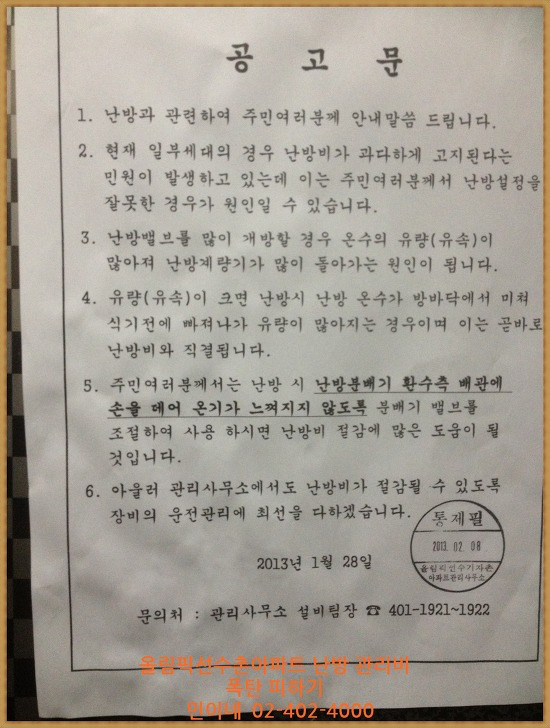 공 고 문
1. 난방과 관련하여 주민여러분께 안내말씀 드립니다.
2. 현재 일부세대의 경우 난방비가 과다하게 고지된다는
민원이 발생하고 있는데 이는 주민여러분께서 난방설정을
잘못한 경우가 원인일 수 있습니다.
3. 난방밸브를 많이 개방할 경우 온수의 유량(유속)이
많아져 난방계량기가 많이 돌아가는 원인이 됩니다.
4. 유량(유속)이 크면 난방시 난방 온수가 방바닥에서 미쳐
식기전에 빠져나가 유량이 많아지는 경우이며 이는 곧바로
난방비와 직결됩니다.
5. 주민여러분께서는 난방 시 난방분배기 환수측 배관에
손을 데어 온기가 느껴지지 않도록 분배기 밸브를
조절하여 사용 하시면 난방비 절감에 많은 도움이 될
것입니다.
6. 아울러 관리사무소에서도 난방비가 절감될 수 있도록
장비의 운전관리에 최선을 다하겠습니다.
통제필
2013. 02. 08
올림픽선수기자촌
아파트관리사무소
2013년 1월 28일
문의처 : 관리사무소 설비팀장 ☎ 401-1921~1922
올림픽선수촌아파트 난방 관리비
폭탄 피하기
민이네 02-402-4000